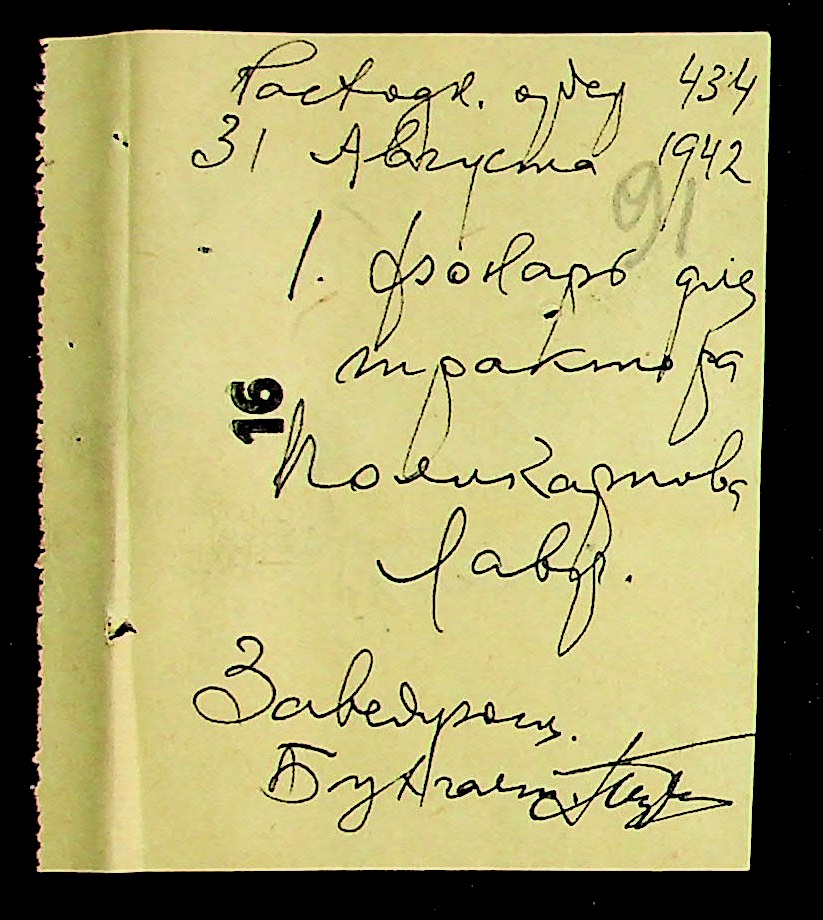 Расходн. ордер 434
31 Августа 1942
91
1. фонарь для
трактора
16
Поликарпова
Лавр.
Заведующ.
Бухгалт.